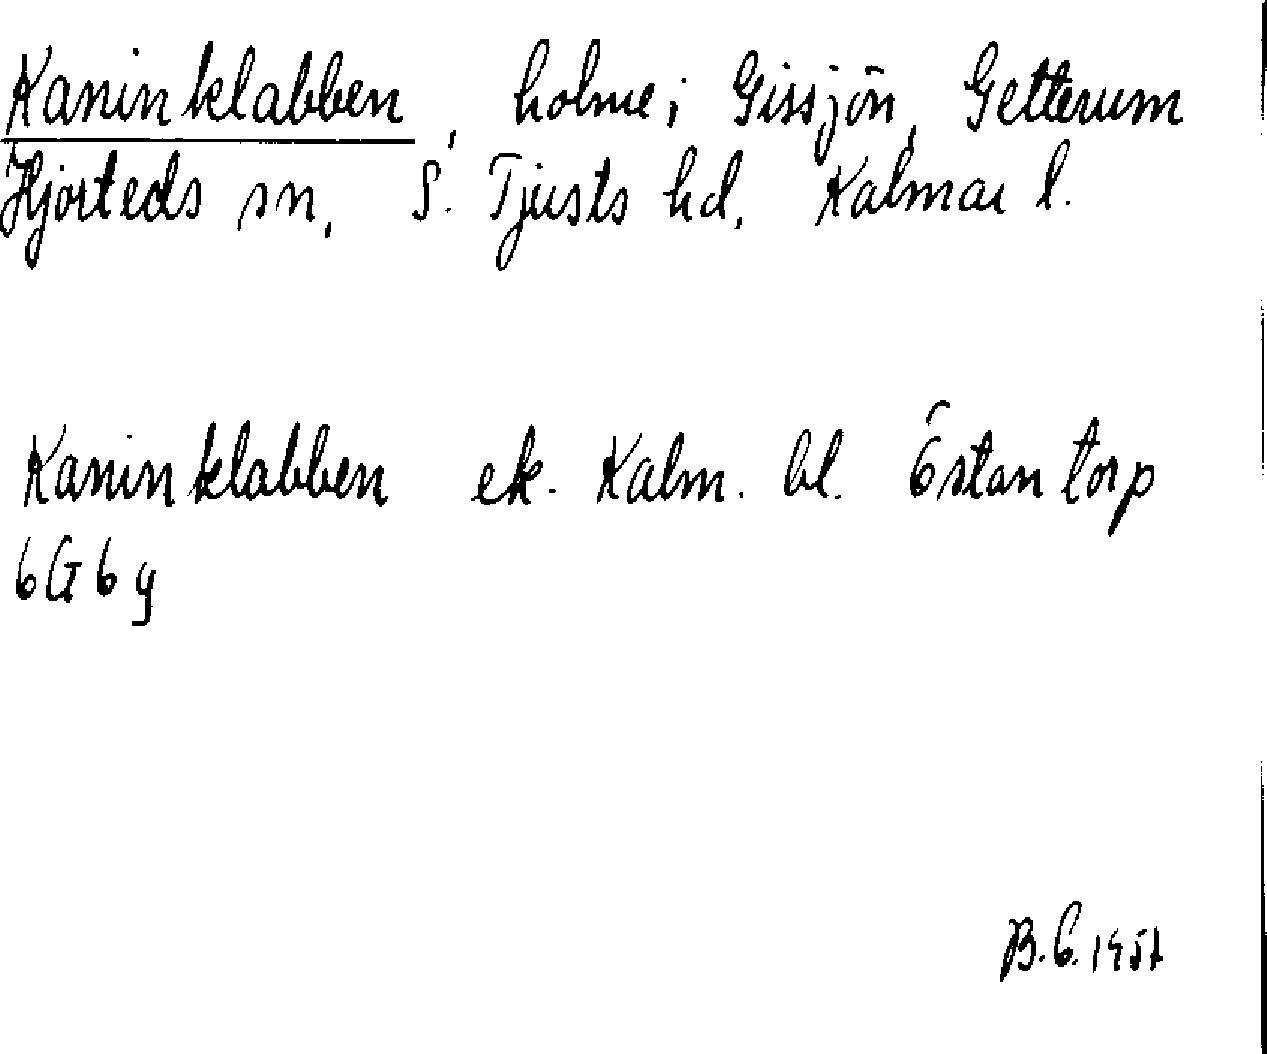 Kaninklabben, holme i Gissjön, Getterum
Hjorteds sn, S. Tjusts hd, Kalmar l.
Kaninklabben ek. Kalm. bl. Östantorp
6G6g
B.G. 1957